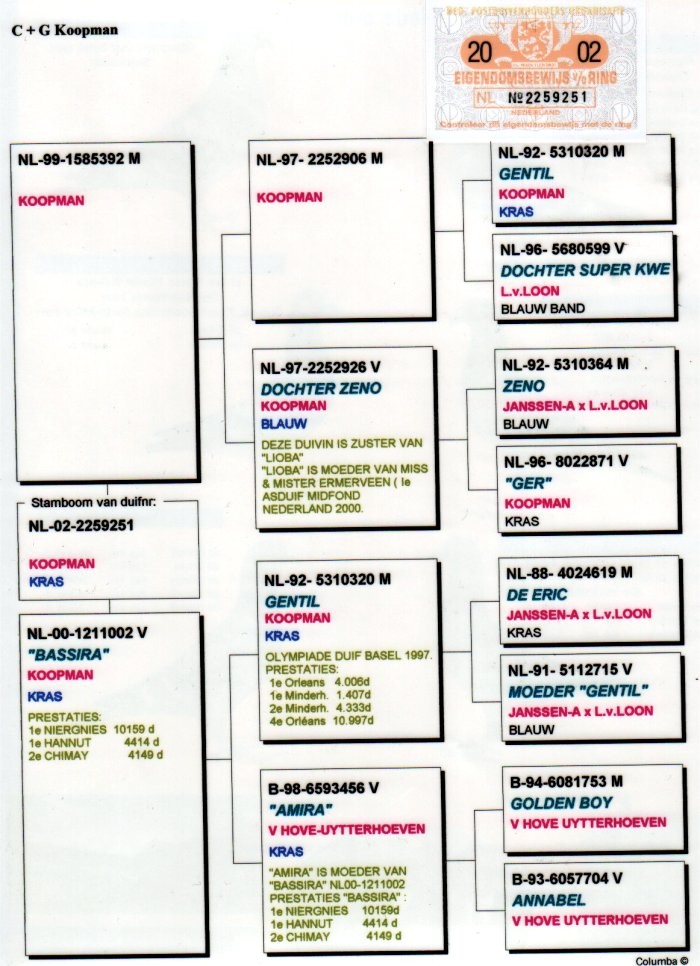 C + G Koopman
NED. POSTDUIVENHOUDERS ORGANISATIE
20 02
EIGENDOMSBEWIJS v/d RING
NL № 2259251
NEDERLAND
Controleer dit eigendomsbewijs met de ring
NL-99-1585392 M
KOOPMAN
NL-97- 2252906 M
KOOPMAN
NL-92- 5310320 M
GENTIL
KOOPMAN
KRAS
NL-96- 5680599 V
DOCHTER SUPER KWE
L.v.LOON
BLAUW BAND
NL-97-2252926 V
DOCHTER ZENO
KOOPMAN
BLAUW
DEZE DUIVIN IS ZUSTER VAN
"LIOBA"
"LIOBA" IS MOEDER VAN MISS
& MISTER ERMERVEEN ( Ie
ASDUIF MIDFOND
NEDERLAND 2000.
NL-92- 5310364 M
ZENO
JANSSEN-A x L.v.LOON
BLAUW
NL-96- 8022871 V
"GER"
KOOPMAN
KRAS
Stamboom van duifnr:
NL-02-2259251
KOOPMAN
KRAS
NL-00-1211002 V
"BASSIRA"
KOOPMAN
KRAS
PRESTATIES:
1e NIERGNIES 10159 d
1e HANNUT 4414 d
2e CHIMAY 4149 d
NL-92- 5310320 M
GENTIL
KOOPMAN
KRAS
OLYMPIADE DUIF BASEL 1997.
PRESTATIES:
1e Orleans 4.006d
1e Minderh. 1.407d
2e Minderh. 4.333d
4e Orléans 10.997d
NL-88- 4024619 M
DE ERIC
JANSSEN-A x L.v.LOON
KRAS
NL-91- 5112715 V
MOEDER "GENTIL"
JANSSEN-A x L.v.LOON
BLAUW
B-98-6593456 V
"AMIRA"
V HOVE-UYTTERHOEVEN
KRAS
"AMIRA" IS MOEDER VAN
"BASSIRA" NL00-1211002
PRESTATIES "BASSIRA" :
1e NIERGNIES 10159d
1e HANNUT 4414 d
2e CHIMAY 4149 d
B-94-6081753 M
GOLDEN BOY
V HOVE UYTTERHOEVEN
B-93-6057704 V
ANNABEL
V HOVE UYTTERHOEVEN
Columba ©